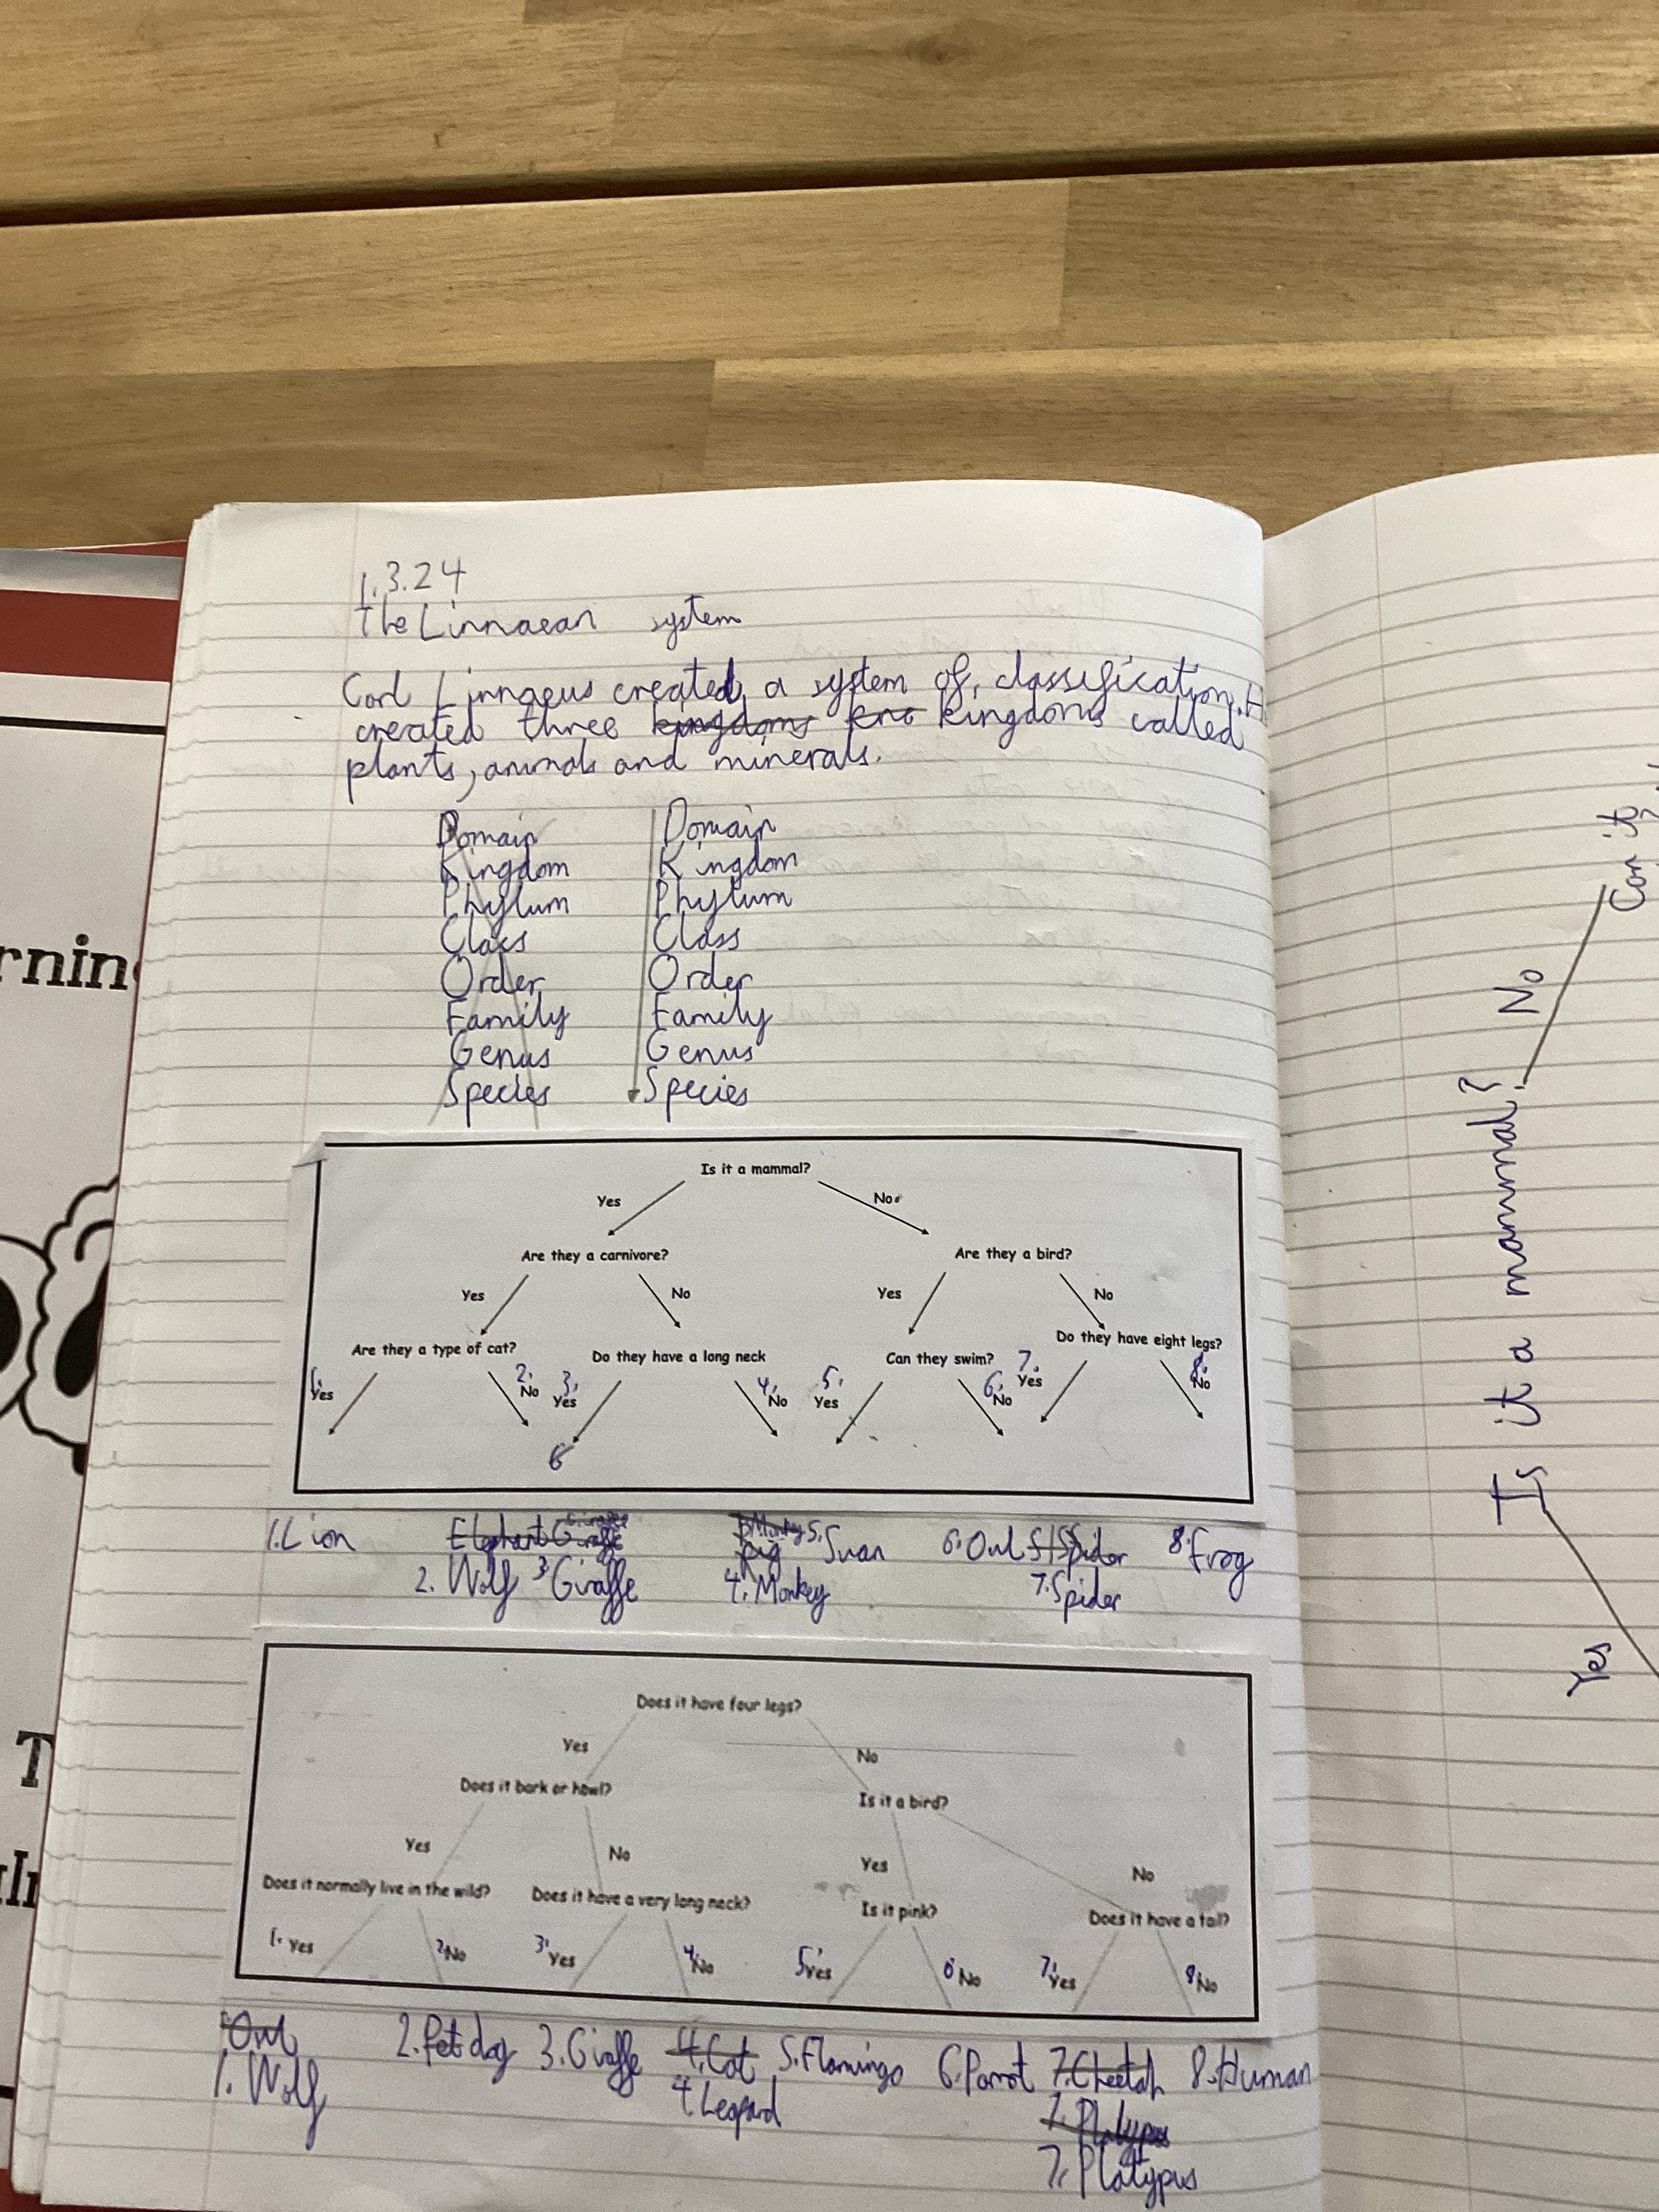 1.3.24
The Linnaean system
Carl Linnaeus created a system of classification. H
created three kingdoms kni kingdoms called
plants, animals and minerals.
Domain Domain
Kingdom Kingdom
Phylum Phylum
Class Class
Order Order
Family Family
Genus Genus
Species Species
Is it a mammal?
Yes No
Are they a carnivore? Are they a bird?
Yes No Yes No
Are they a type of cat? Do they have a long neck Can they swim? Do they have eight legs?
1. Yes 2. No 3. Yes 4. No 5. Yes 6. No 7. Yes 8. No
6
1. Lion Elephant Giraffe Pig 5. Swan 6. Owl Spider 8. Frog
2. Wolf 3. Giraffe 4. Monkey 7. Spider
Does it have four legs?
Yes No
Does it bark or howl? Is it a bird?
Yes No Yes No
Does it normally live in the wild? Does it have a very long neck? Is it pink? Does it have a tail?
1. Yes 2. No 3. Yes 4. No 5. Yes 6. No 7. Yes 8. No
Owl 2. Pet dog 3. Giraffe 4. Cat 5. Flamingo 6. Parrot 7. Cheetah 8. Human
1. Wolf 4. Leopard 7. Platypus
7. Platypus
Is it a mammal?
No
Can it
Yes
rnin
T